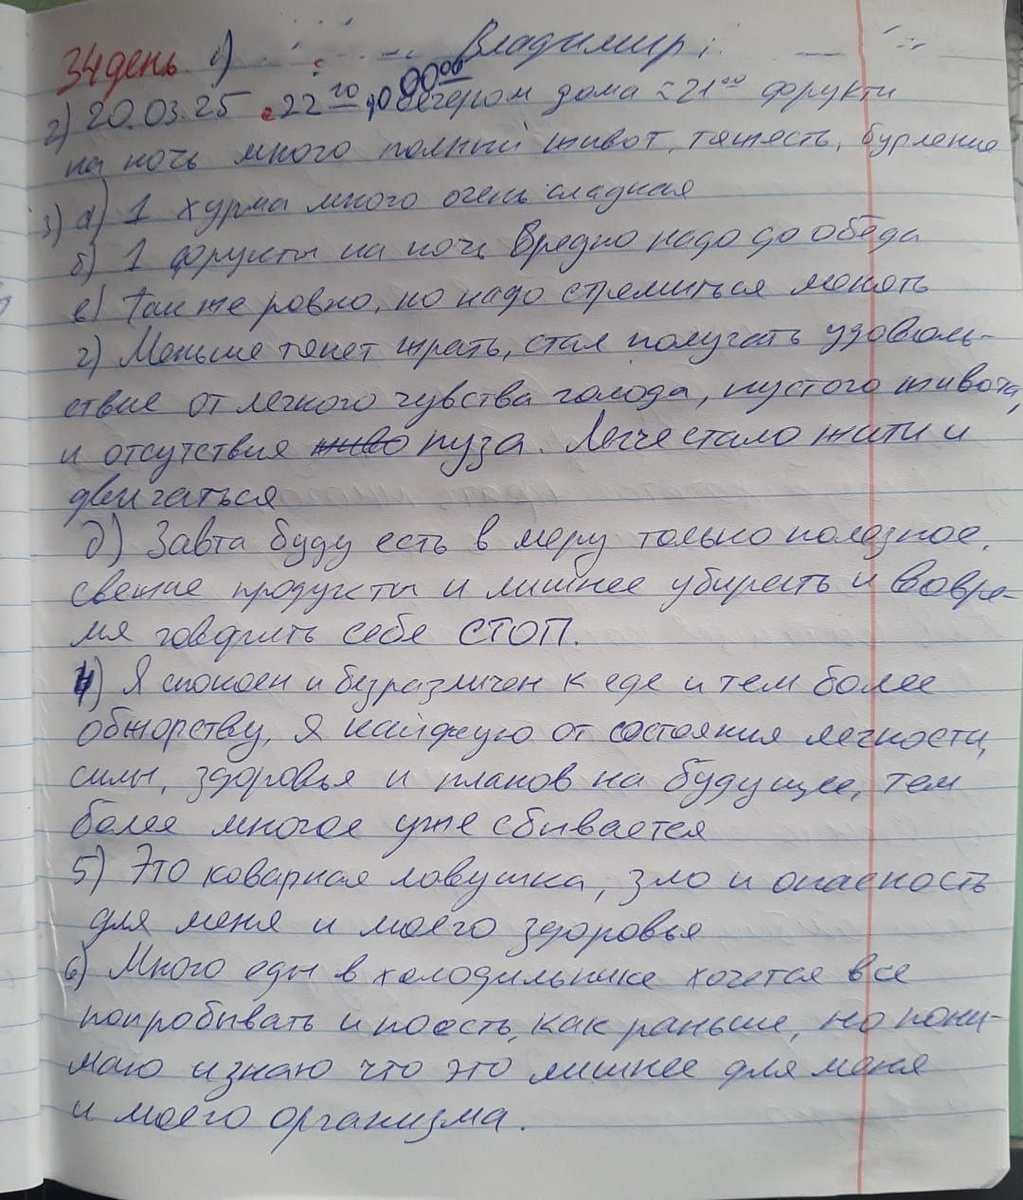 34 день 1) Владимир;
2) 20.03.25 с 22 10 до 00 00 вечером дома ≈ 21 00 фрукти
на ночь много полный живот, тяжесть, бурление
3) а) 1 хурма много очень сладная
б) 1 фрукты на ночь вредно надо до обеда
в) Так же ровно, но надо стремиться менять
г) Меньше тянет жрать, стал получать удоволь-
ствие от легкого чувства голода, пустого живота,
и отсутствия пуза. Легче стало жити и
двигаться
д) Завта буду есть в меру только полезное,
свежие продукты и лишнее убирать и вовре-
мя говорить себе СТОП.
4) Я спокоен и безразличен к еде и тем более
обжорству, я кайфую от состояния легкости,
силы, здоровья и планов на будущее, тем
более многое уже сбывается
5) Это коварная ловушка, зло и опасность
для меня и моего здоровья
6) Много еды в холодильнике хочется все
попробывать и поесть, как раньше, но пони-
маю и знаю что это лишнее для меня
и моего организма.